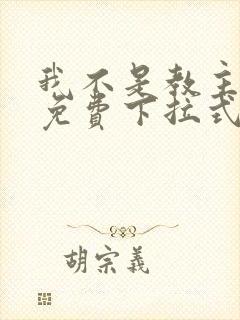 我不是教主
免费下拉式
胡宗義